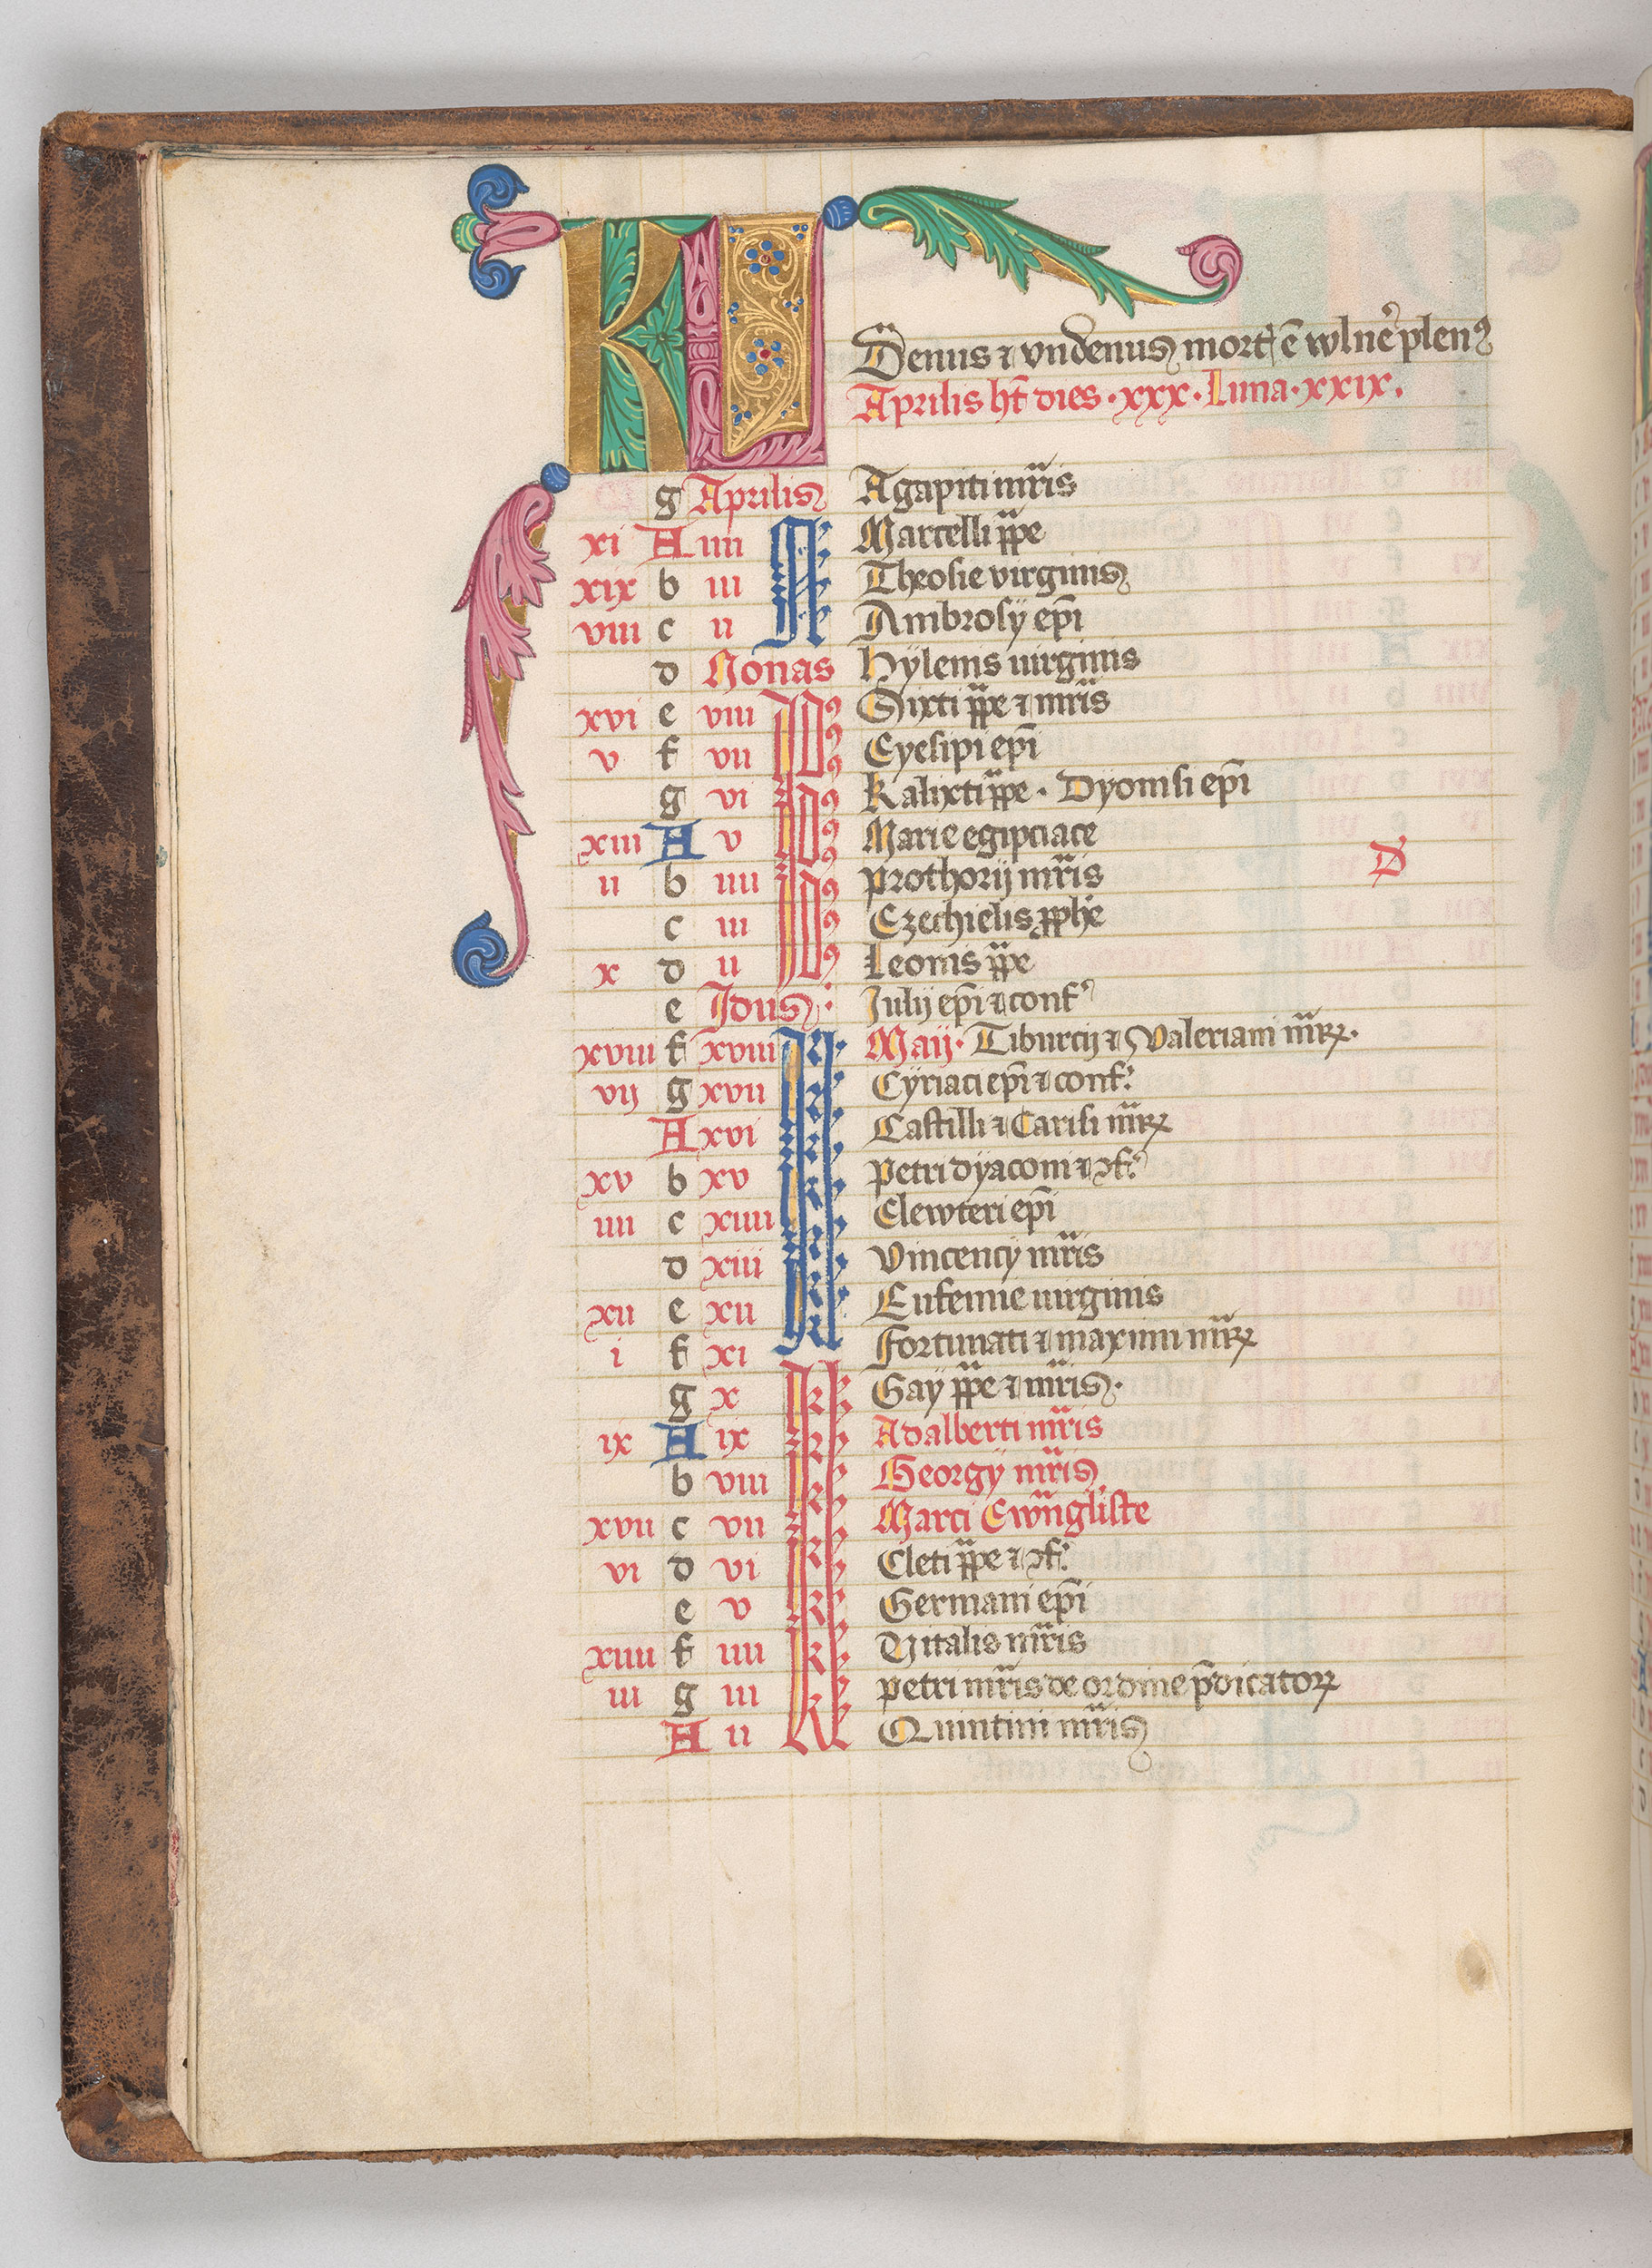 KL
Denus ⁊ vndenus mort̛ ē wlne᷒ plenꝰ
Aprilis ht̄ dies · xxx · Luna · xxix ·
g Aprilis Agapiti mr̄is
xi A iiii N Marcelli pp̄e
xix b iii N Theosie virginis
viii c ii N Ambrosÿ ep̄i
d Nonas Hÿlenis uirginis
xvi e viii Idꝰ Sixti pp̄e ⁊ mr̄is
v f vii Idꝰ Eyesipi ep̄i
g vi Idꝰ Kalixti pp̄e · Dyonisi ep̄i
xiii A v Idꝰ Marie egipciace
ii b iiii Idꝰ Prothorij mr̄is
c iii Idꝰ Ezechielis ꝓph̄e
x d ii Idꝰ Leonis pp̄e
e Idus : Julij ep̄i ⁊ conf᷒
xviii f xviii kl Maij · Tiburcij ⁊ Valeriani mr̄ꝝ ·
vij g xvii kl Cÿriaci ep̄i ⁊ conf᷒
A xvi kl Castilli ⁊ Carisi mr̄ꝝ
xv b xv kl Petri dÿaconi ⁊ ꝯf᷒
iiii c xiiii kl Elewteri ep̄i
d xiii kl Vincencij mr̄is
xii e xii kl Eufemie uirginis
i f xi kl Fortunati ⁊ maximi mr̄ꝝ
g x kl Gaÿ pp̄e ⁊ mr̄is ·
ix A ix kl Adalberti mr̄is
b viii kl Georgÿ mr̄is
xvii c vii kl Marci Ewn̄gl̄iste
vi d vi kl Cleti pp̄e ⁊ ꝯf᷒
e v kl Germani ep̄i
xiiii f iiii kl Vitalis mr̄is
iii g iii kl Petri mr̄is de ordine p̄dicatoꝝ
A ii kl Quintini mr̄is
D